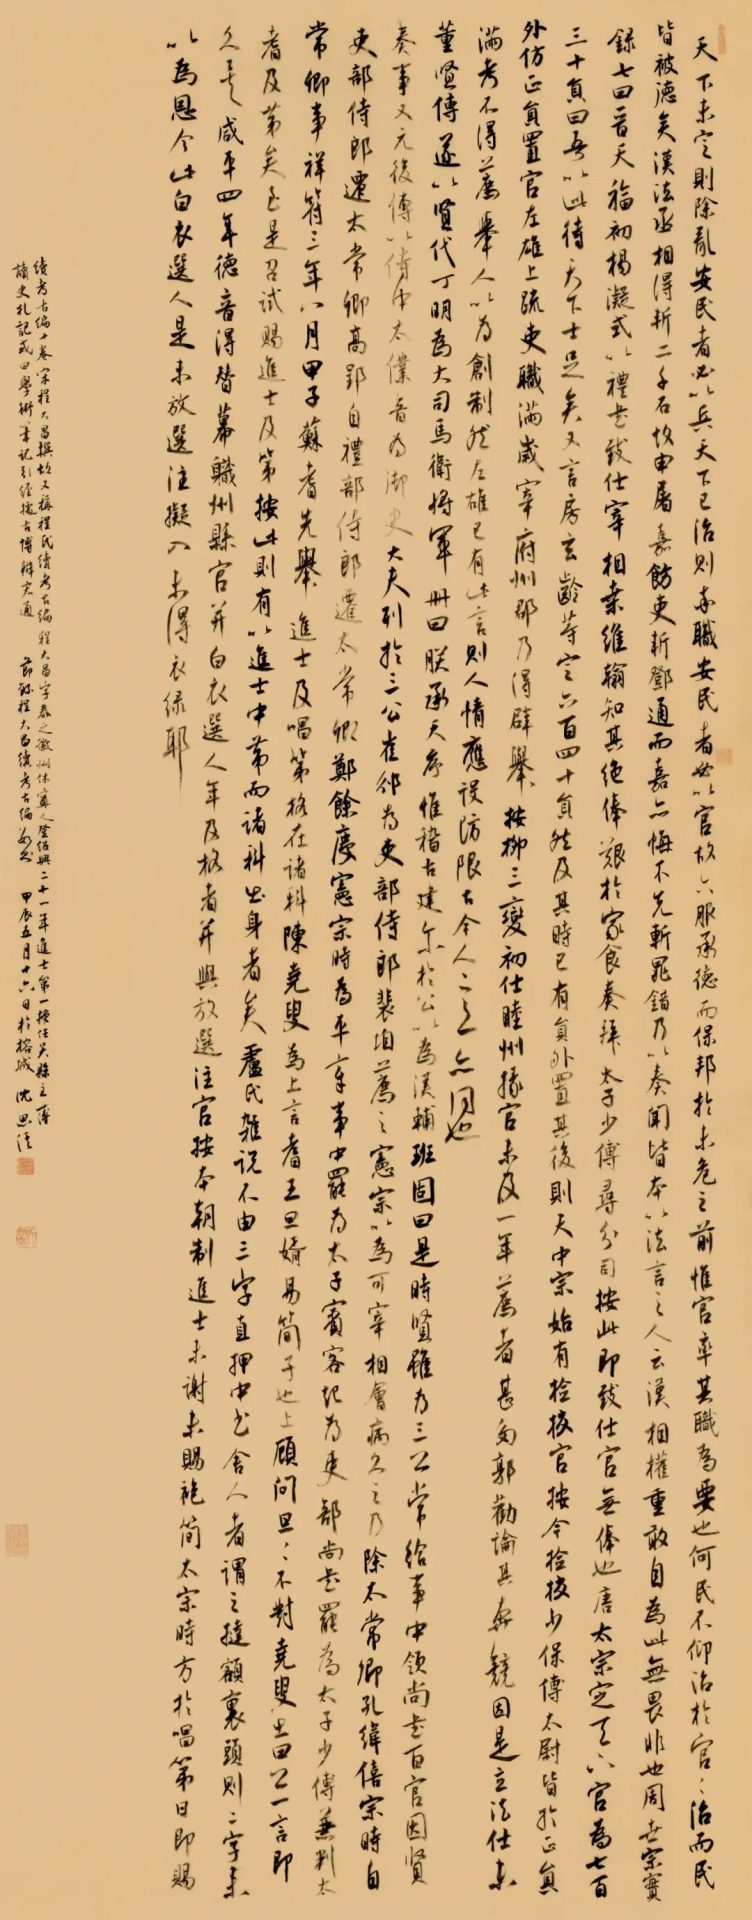 天下未定則除亂安民者必以兵天下已治則率職安民者必以官故六服承德而保邦於未危之前惟官率其職為要也何民不仰治於官官治而民
皆被德矣漢法丞相得斬二千石故申屠嘉飭吏斬鄧通而嘉亦悔不先斬晁錯乃以奏聞皆本以法言之人云漢相權重敢自為此無畏非也周世宗實
錄七曰晉天福初楊凝式以禮書致仕宰相桑維翰知其絕俸艱於家食奏拜太子少傅尋分司按此即致仕官無俸也唐太宗定天下官為七百
三十員曰吾以此待天下士足矣又言房玄齡等定六百四十員然及其時已有員外置其後則天中宗始有檢校官按今檢校少保傅太尉皆於正員
外仿正員置官左雄上疏吏職滿歲宰府州郡乃得辟舉按柳三變初仕睦州掾官未及一年薦者甚多郭勸論其奔競因是立法仕未
滿考不得薦舉人以為創制然左雄已有此言則人情應設防限古今人之意亦同也
董賢傳遂以賢代丁明為大司馬衛將軍冊曰朕承天序惟稽古建爾於公以為漢輔班固曰是時賢雖為三公常給事中領尚書百官因賢
奏事又元後傳以侍中太僕音為御史大夫列於三公崔邠為吏部侍郎裴垍薦之憲宗以為可宰相會病久之乃除太常卿孔緯僖宗時自
吏部侍郎遷太常卿高郢自禮部侍郎遷太常卿鄭餘慶憲宗時為平章事中罷為太子賓客起為吏部尚書罷為太子少傅兼判太
常卿事祥符三年八月甲子蘇耆先舉進士及唱第格在諸科陳堯叟為上言耆王旦婿易簡子也上顧問旦旦不對堯叟出曰公一言即
耆及第矣至是召試賜進士及第按此則有以進士中第而諸科出身者矣盧氏雜說不由三字直押中書舍人者謂之撻額裹頭則二字來
久矣咸平四年德音得替幕職州縣官并白衣選人年及格者并與放選注官按本朝制進士未謝未賜袍笏太宗時方於唱第日即賜
以為恩今此白衣選人是未放選注擬入未得衣綠耶
續考古編十卷宋程大昌撰故又稱程氏續考古編程大昌字泰之徽州休寧人登紹興二十一年進士第一授任吳縣主簿
讀史札記或曰學術筆記引經據古博辯宏通 節錄程大昌續考古編句 甲辰五月十六日於榕城 沈思源